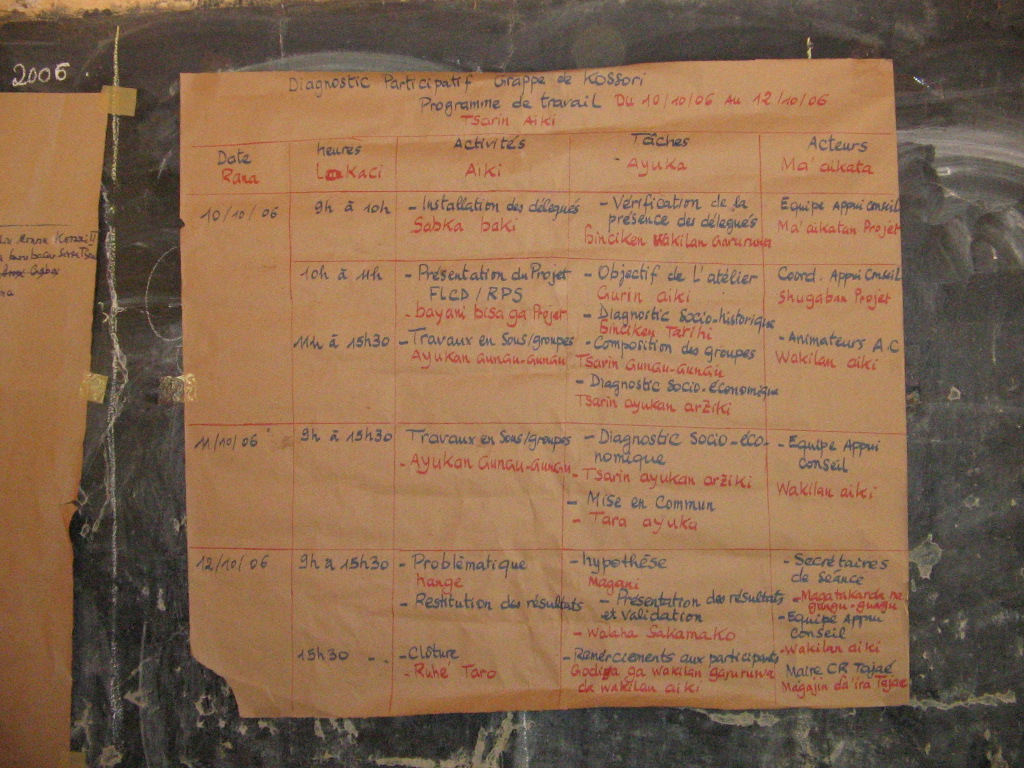 2006
Diagnostic Participatif Grappe de Kossori
Programme de travail Du 10/10/06 Au 12/10/06
Tsarin Aiki
Date
Rana
heures
Lokaci
Activités
Aiki
Tâches
Ayuka
Acteurs
Ma'aikata
10/10/06
9h à 10h
- Installation des délegués
Sabka baki
- Vérification de la
présence des délegués
binciken Wakilan Garuruwa
Equipe Appui Conseil
Ma'aikatan Projet
10h à 11h
- Présentation du Projet
FLCD / RPS
- bayani bisa ga Projet
- Objectif de L'atélier
Gurin aiki
- Diagnostic Socio-historique
binciken Tarihi
Coord. Appui Conseil
Shugaban Projet
11h à 15h30
- Travaux en Sous/groupes
Ayukan Gungu-Gungu
- Composition des groupes
Tsarin Gungu-Gungu
- Diagnostic Socio-économique
Tsarin ayukan arziki
- Animateurs A.C
Wakilan aiki
11/10/06
9h à 15h30
Travaux en Sous/groupes
- Ayukan Gungu-Gungu
- Diagnostic Socio-éco-
nomique
- Tsarin ayukan arziki
- Mise en Commun
- Tara ayuka
- Equipe Appui
Conseil
Wakilan aiki
12/10/06
9h à 15h30
- Problématique
hange
- Restitution des résultats
- hypothèse
Magani
- Présentation des résultats
et validation
- Walaha Sakamako
- Secrétaires
de Séance
- Magatakarda na
gungu-gungu
- Equipe Appui
Conseil
- Wakilan aiki
15h30 - -
- Clôture
- Ruhé Taro
- Remérciements aux participants
Godiya ga wakilan garuruwa
da wakilan aiki
Maire CR Tajaé
Magajin da'ira Tajae